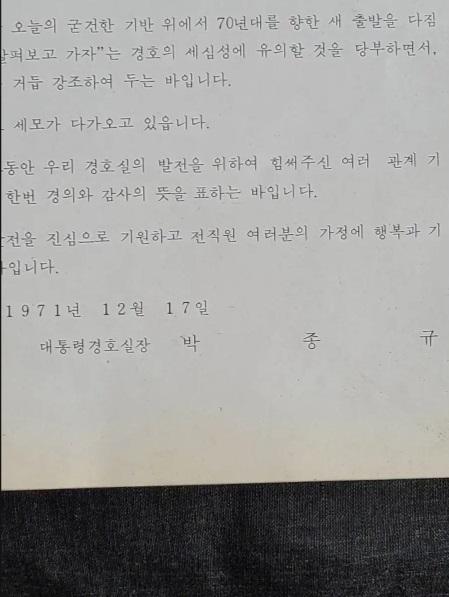 오늘의 굳건한 기반 위에서 70년대를 향한 새 출발을 다짐
살펴보고 가자”는 경호의 세심성에 유의할 것을 당부하면서,
거듭 강조하여 두는 바입니다.
세모가 다가오고 있읍니다.
동안 우리 경호실의 발전을 위하여 힘써주신 여러 관계 기
한번 경의와 감사의 뜻을 표하는 바입니다.
발전을 진심으로 기원하고 전직원 여러분의 가정에 행복과 기
바입니다.
1971년 12월 17일
대통령경호실장 박 종 규